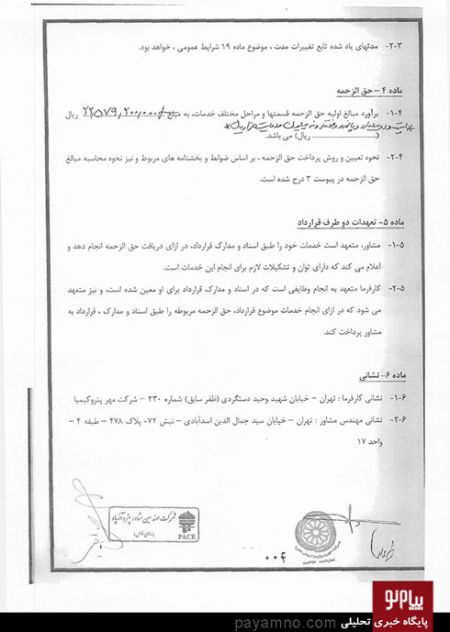 ۲-۳- مدتهای یاد شده تابع تغییرات مدت ، موضوع ماده ۱۹ شرایط عمومی ، خواهد بود.
ماده ۴ – حق الزحمه
۱-۴- برآورد مبالغ اولیه حق الزحمه قسمتها و مراحل مختلف خدمات، به مبلغ ۲۲,۵۷۹,۲۰۰,۰۰۰ ریال
ریال) می باشد.
۲-۴- نحوه تعیین و روش پرداخت حق الزحمه ، بر اساس ضوابط و بخشنامه های مربوط و نیز نحوه محاسبه مبالغ
حق الزحمه در پیوست ۳ درج شده است.
ماده ۵- تعهدات دو طرف قرارداد
۱-۵- مشاور، متعهد است خدمات خود را طبق اسناد و مدارک قرارداد، در ازای دریافت حق الزحمه انجام دهد و
اعلام می کند که دارای توان و تشکیلات لازم برای انجام این خدمات است.
۲-۵- کارفرما متعهد به انجام وظایفی است که در اسناد و مدارک قرارداد برای او معین شده است، و نیز متعهد
می شود که در ازای انجام خدمات موضوع قرارداد، حق الزحمه مربوطه را طبق اسناد و مدارک ، قرارداد به
مشاور پرداخت کند.
ماده ۶- نشانی
۱-۶- نشانی کارفرما : تهران – خیابان شهید وحید دستگردی (ظفر سابق) شماره ۲۳۰ – شرکت مهر پتروکیمیا
۲-۶- نشانی مهندس مشاور : تهران – خیابان سید جمال الدین اسدآبادی – نبش ۷۲- پلاک ۴۷۸ – طبقه ۴ –
واحد ۱۷
PACE
۰۰۴
پیام‌نو
پایگاه خبری تحلیلی
payamno.com